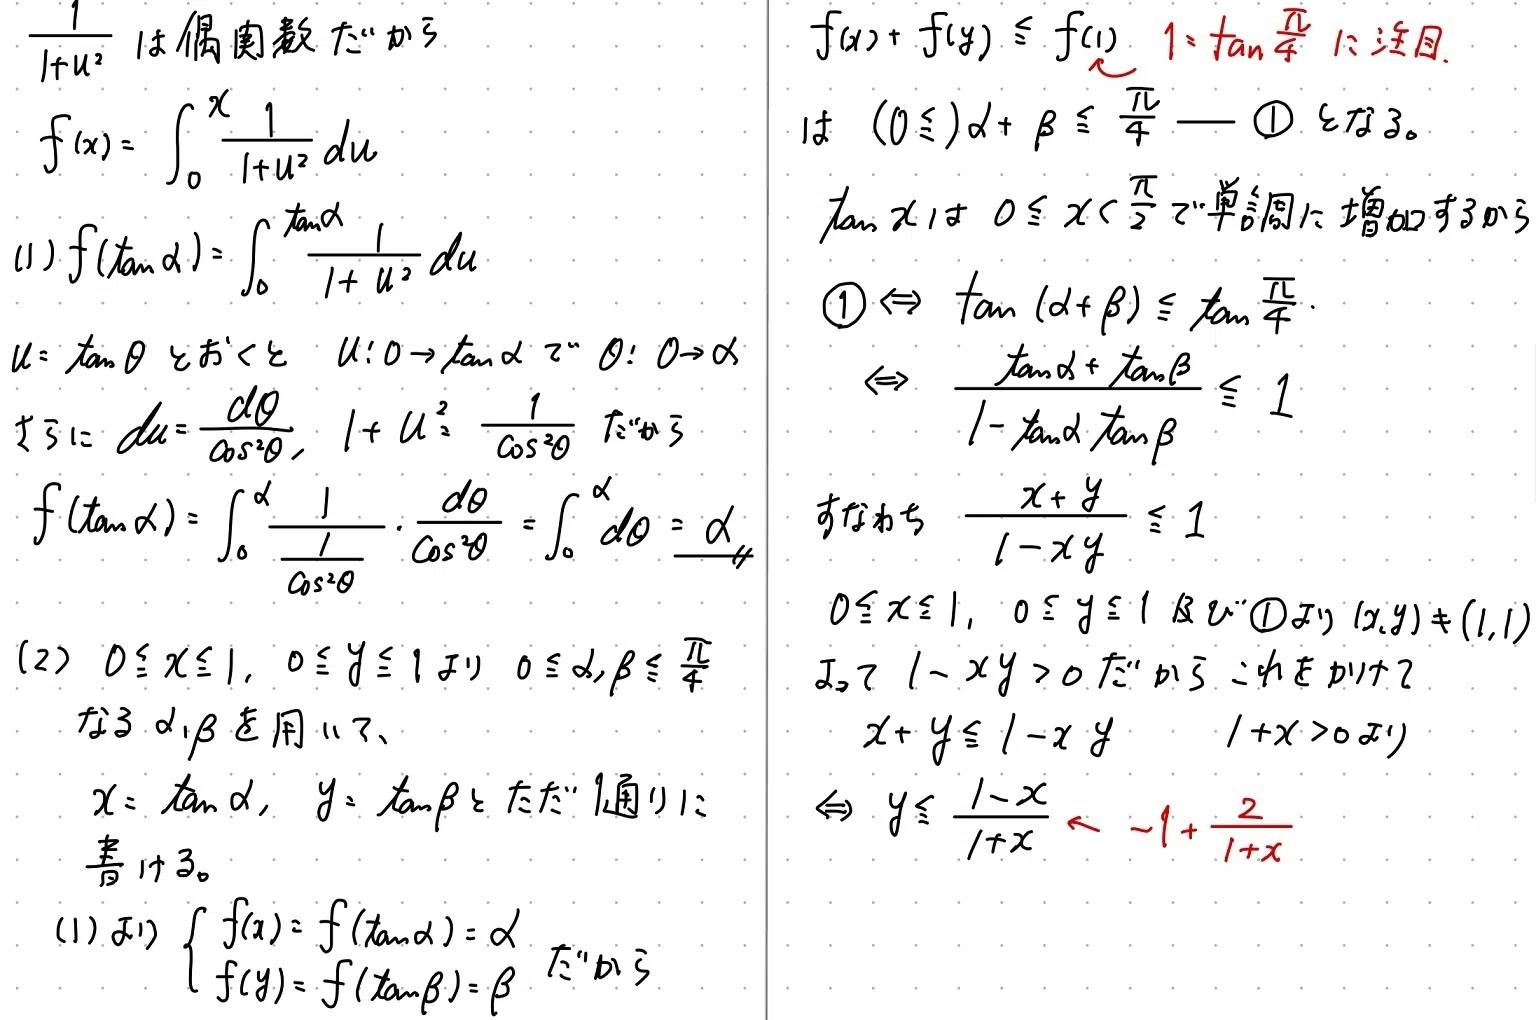 1/(1+u²) は偶関数だから
f(x) = ∫₀ˣ 1/(1+u²) du
(1) f(tan α) = ∫₀^{tan α} 1/(1+u²) du
u = tan θ とおくと u : 0 → tan α で θ : 0 → α
さらに du = dθ/cos²θ, 1+u² = 1/cos²θ だから
f(tan α) = ∫₀^α 1/(1/cos²θ) · dθ/cos²θ = ∫₀^α dθ = α
(2) 0 ≦ x ≦ 1, 0 ≦ y ≦ 1 より 0 ≦ α, β ≦ π/4
なる α, β を用いて、
x = tan α, y = tan β とただ1通りに
書ける。
(1)より { f(x) = f(tan α) = α
f(y) = f(tan β) = β だから
f(x) + f(y) ≦ f(1) 1 = tan π/4 に注目.
は (0 ≦) α + β ≦ π/4 — ① となる。
tan x は 0 ≦ x < π/2 で単調に増加するから
① ⇔ tan (α+β) ≦ tan π/4.
⇔ (tan α + tan β)/(1 − tan α tan β) ≦ 1
すなわち (x+y)/(1−xy) ≦ 1
0 ≦ x ≦ 1, 0 ≦ y ≦ 1 及び①より (x,y) ≠ (1,1)
よって 1 − xy > 0 だから これをかけて
x + y ≦ 1 − xy 1+x > 0 より
⇔ y ≦ (1−x)/(1+x) ← −1 + 2/(1+x)